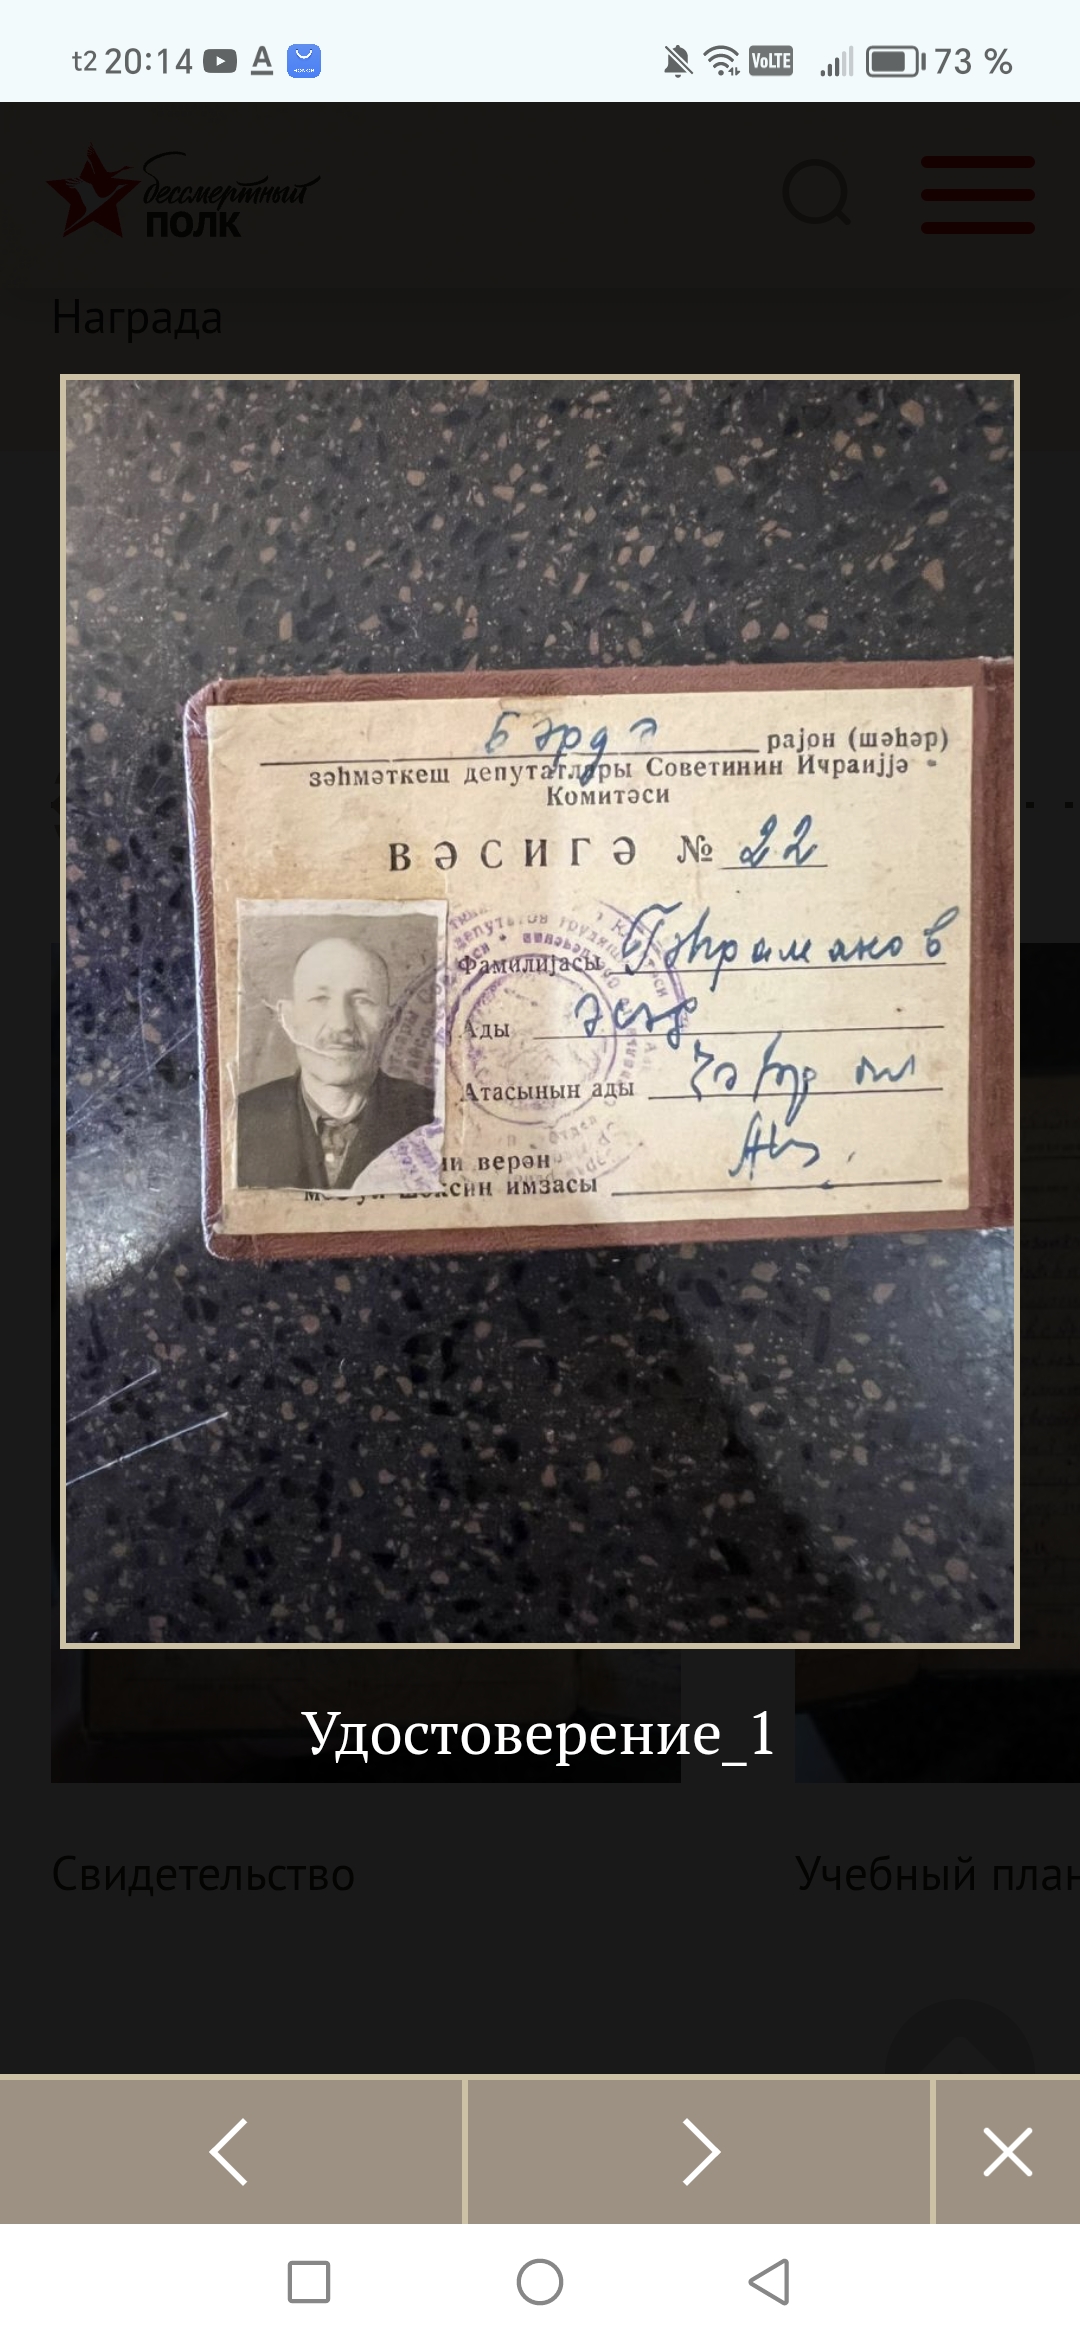 t2 20:14
VoLTE 73 %
бессмертный
ПОЛК
Награда
Бәрдә рајон (шәһәр)
зәһмәткеш депутатлары Советинин Ичраијјә
Комитәси
ВӘСИГӘ № 22
Фамилијасы Гәһраманов
Ады
Атасынын ады
верән
имзасы
Удостоверение_1
Свидетельство
Учебный план